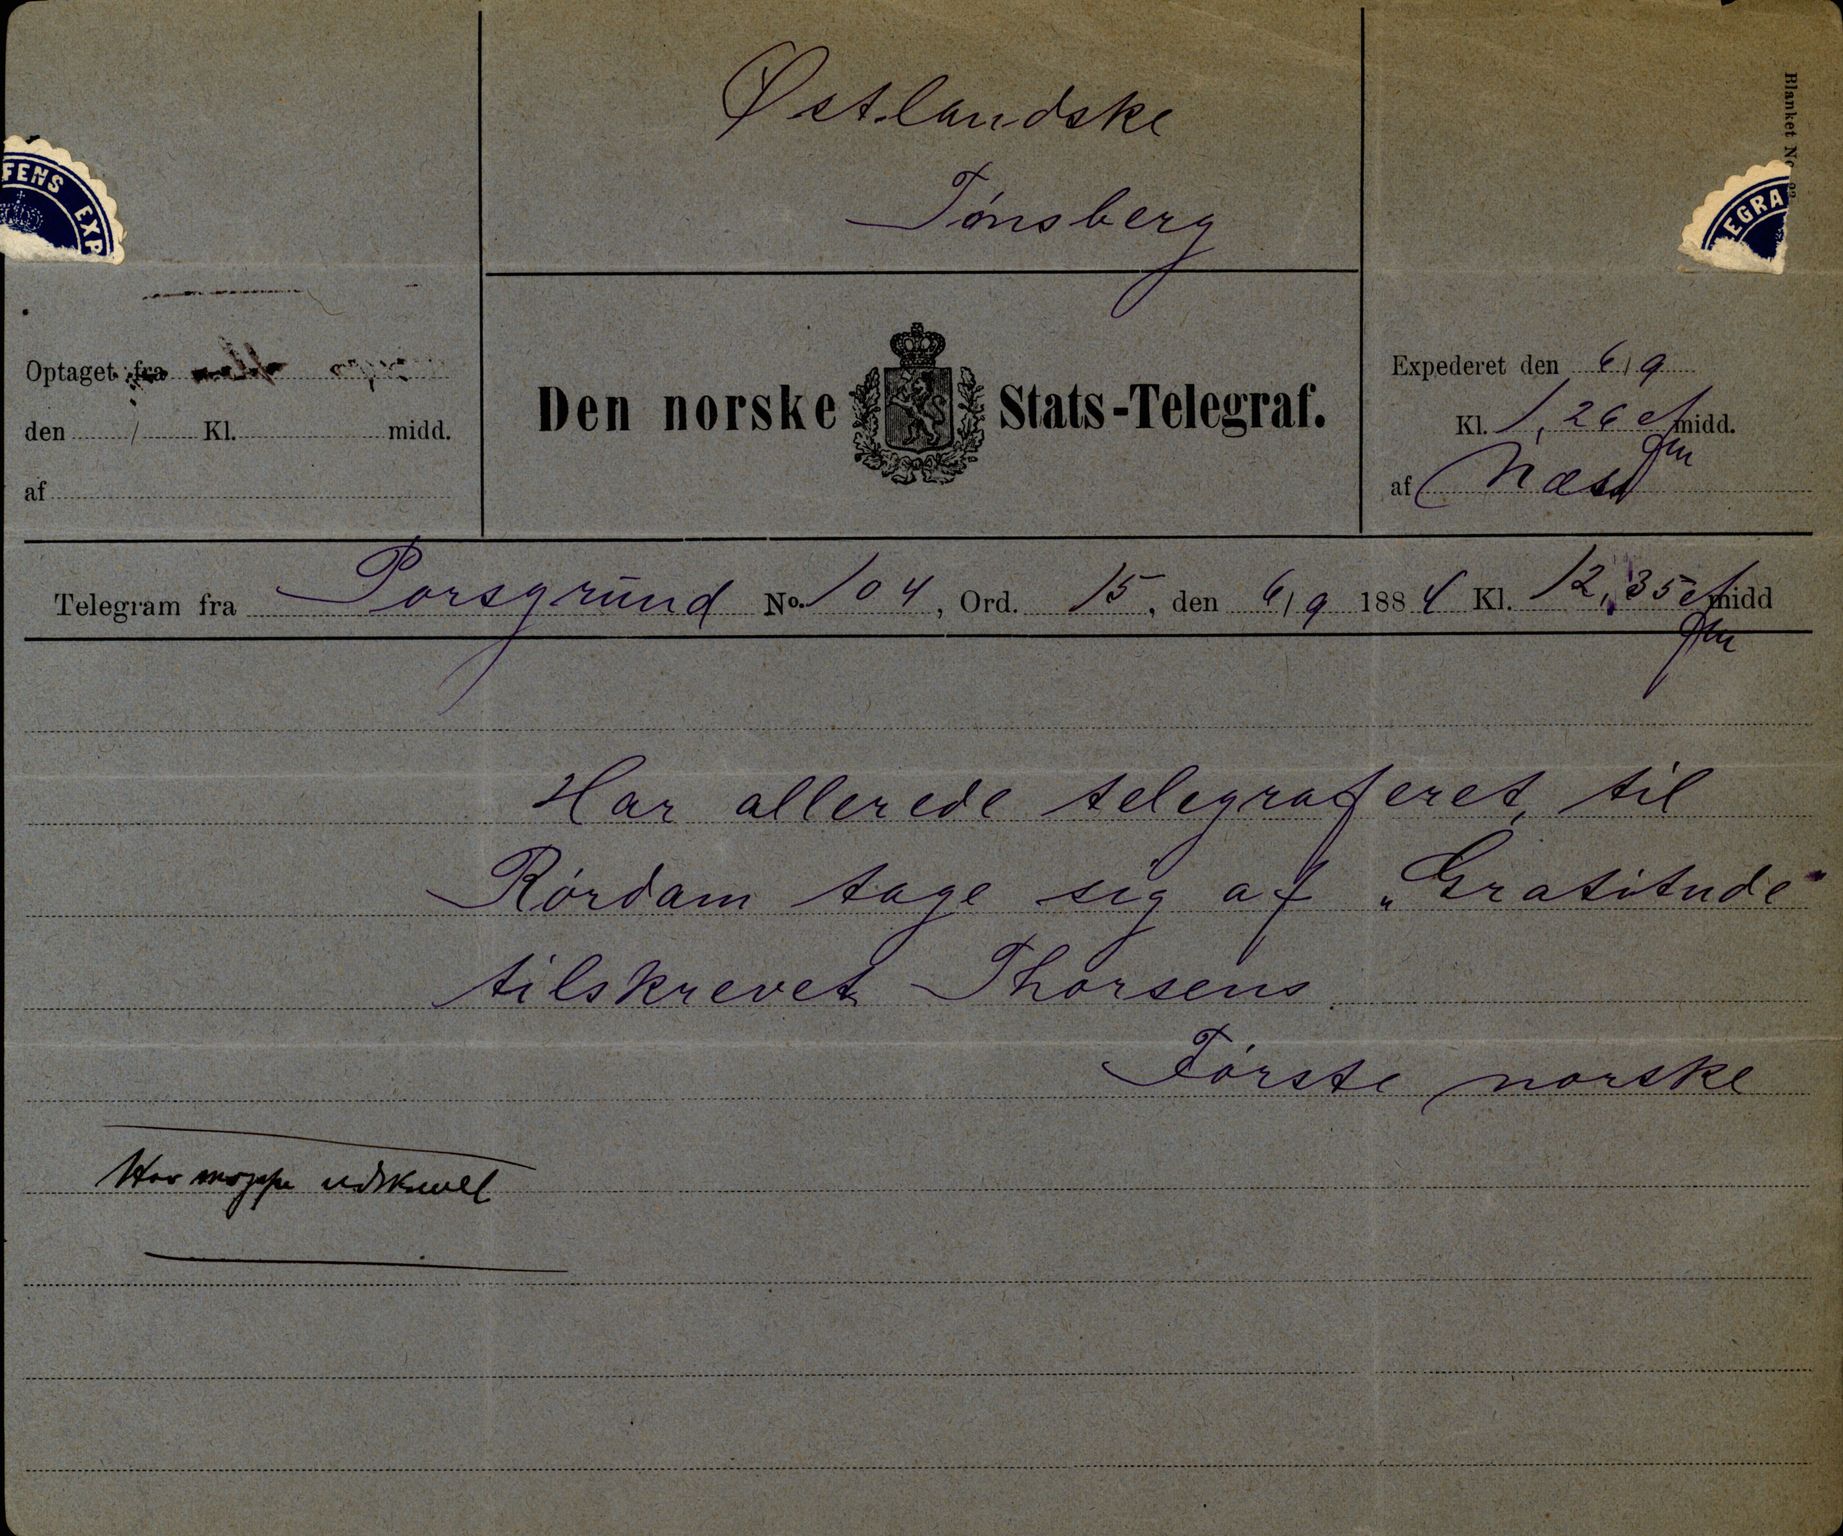 Østlandske
Tønsberg
Blanket No
FENS EXP
EGRA
Optaget fra
den Kl. midd.
af
Den norske Stats-Telegraf.
Expederet den 6/9
Kl. 1,26 Efmidd.
fm
af Næss
Telegram fra Porsgrund No. 104, Ord. 15, den 6/9 1884 Kl. 12,35 Efmidd
fm
Har allerede telegraferet til
Rördam tage sig af „Gratitude"
tilskrevet Thorsens
Förste norske
Har udskrevet